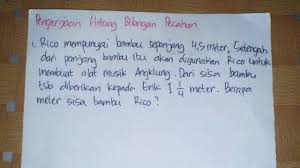 Pengerjaan Hitung Bilangan Pecahan
1. Rico mempunyai bambu sepanjang 4,5 meter, Setengah
dari panjang bambu itu akan digunakan Rico untuk
membuat alat musik Angklung. Dari sisa bambu
tsb diberikan kepada Erik 1 1/4 meter. Berapa
meter sisa bambu Rico?